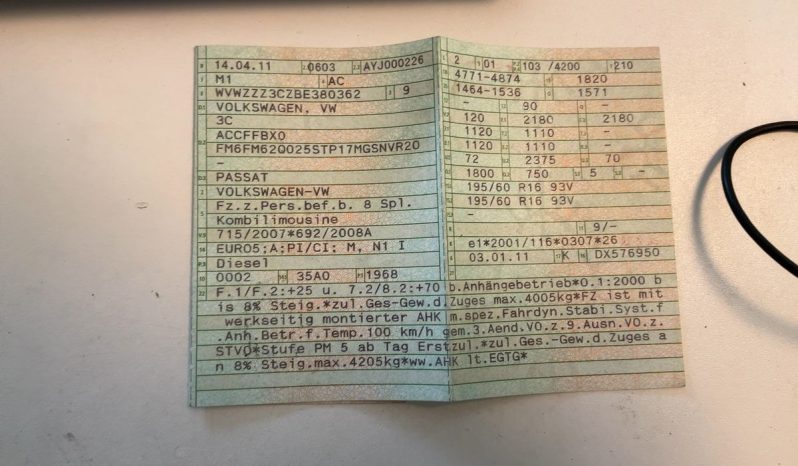 14.04.11 0603 AYJ000226
M1 AC
WVWZZZ3CZBE380362 9
VOLKSWAGEN, VW
3C
ACCFFBX0
FM6FM62Q025STP17MGSNVR20
-
PASSAT
VOLKSWAGEN-VW
Fz.z.Pers.bef.b. 8 Spl.
Kombilimousine
715/2007*692/2008A
EURO5;A;PI/CI: M, N1 I
Diesel
0002 35A0 1968
2 01 103 /4200 210
4771-4874 1820
1464-1536 1571
- 90 -
120 2180 2180
1120 1110 -
1120 1110 -
72 2375 70
1800 750 5 -
195/60 R16 93V
195/60 R16 93V
-
9/-
e1*2001/116*0307*26
03.01.11 K DX576950
F.1/F.2:+25 u. 7.2/8.2:+70 b.Anhängebetrieb*O.1:2000 b
is 8% Steig.*zul.Ges-Gew.d.Zuges max.4005kg*FZ ist mit
werkseitig montierter AHK m.spez.Fahrdyn.Stabi.Syst.f
.Anh.Betr.f.Temp.100 km/h gem.3.Aend.VO.z.9.Ausn.VO.z.
STVO*Stufe PM 5 ab Tag Erstzul.*zul.Ges.-Gew.d.Zuges a
n 8% Steig.max.4205kg*ww.AHK lt.EGTG*